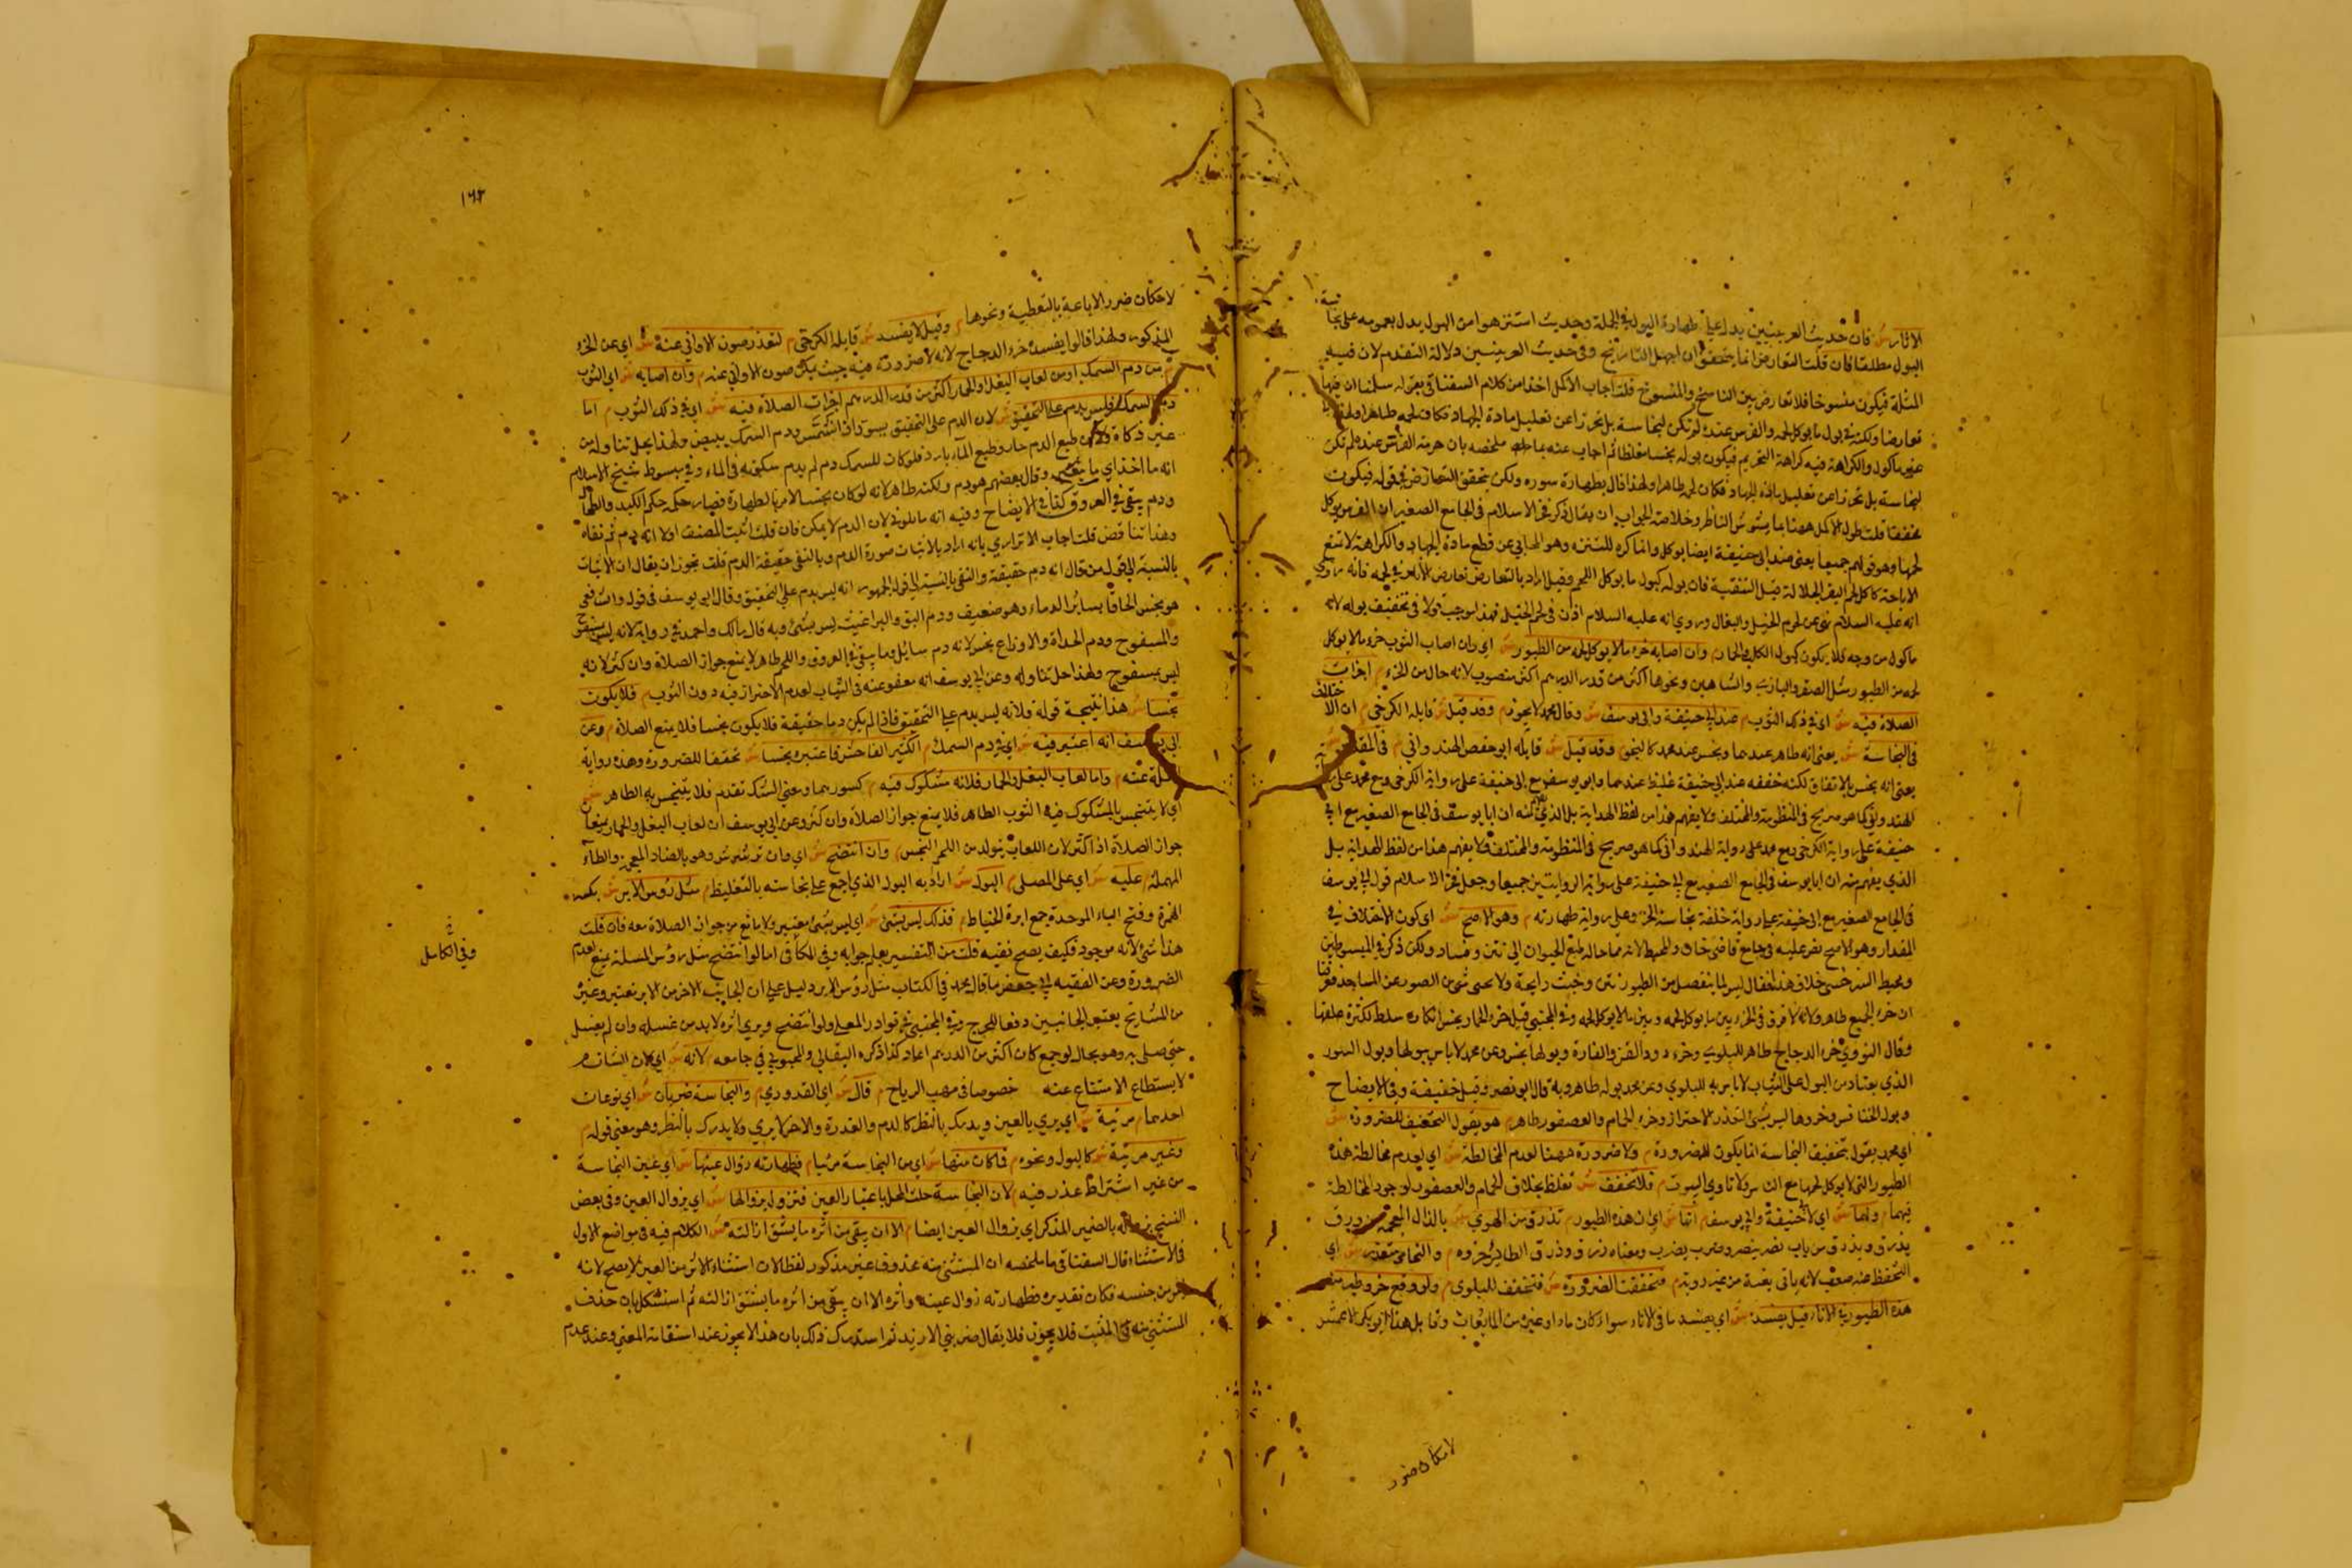 الاثار ش فان حديث العرنيين يدل على طهارة البول في الجملة وحديث استنزهوا من البول يدل بعمومه على نجاسة
البول مطلقا فان قلت التعارض انما يتحقق ان اجهل التاريخ وفي حديث العرنيين دلالة التقدم لان فيه
المثلة فيكون منسوخا فلا تعارض بين الناسخ والمنسوخ قلت اجاب الاكمل اخذا من كلام السغناقي بقوله سلمنا ان فيها
تعارضا ولكنه في بول ما يوكل لحمه والفرس عنده لم تكن لنجاسة بل تحرزا عن تعليل مادة الجهاد فكان لحمه طاهرا
غير ماكول والكراهة فيه كراهة التحريم فيكون بوله نجسا مغلظا ثم اجاب عنه بما ملخصه بان حرمة الفرس عنده لم تكن
لنجاسة بل تحرزا عن تعليل مادة الجهاد فكان لحمه طاهرا ولهذا قال بطهارة سوره ولكن يتحقق التعارض في قوله فيكون
مخففا قلت طول الاكمل ههنا بما يشوش الناظر وخلاصة الجواب ان يقال ذكر فخر الاسلام في الجامع الصغير ان الفرس يوكل
لحمها وهو قولهم جميعا يعني عند ابي حنيفة ايضا يوكل وانما كره للتنزه وهو التحامي عن قطع مادة الجهاد والكراهة لا تمنع
الاباحة كاكل لحم البقر الجلالة قبل التنقية فان بوله كبول ما يوكل اللحم وقيل اراد بالتعارض تعارض الاثار في لحمه فانه روي
انه عليه السلام نهى عن لحوم الخيل والبغال وروي انه عليه السلام اذن في لحم الخيل فهذا يوجب قولا في تخفيف بوله لانه
ماكول من وجه فلا يكون كبول الكلب والحمار م وان اصابه خرء ما لا يوكل لحمه من الطيور ش اي وان اصاب الثوب خرء ما لا يوكل
لحمه من الطيور مثل الصقر والبازي والشاهين ونحوها اكثر من قدر الدرهم اكثر منصوب لانه حال من الخرء م اجزات
الصلاة فيه ش اي في ذلك الثوب م عند ابي حنيفة وابي يوسف ش وقال محمد لا يجوز م وقد قيل ش قايله الكرخي م ان الاختلاف
في النجاسة ش يعني انه طاهر عندهما ونجس عند محمد كالبخو م وقد قيل ش قايله ابو جعفر الهندواني م في المقدار ش
يعني انه نجس بالاتفاق لكنه خفيفة عند ابي حنيفة غليظ عندهما وابو يوسف مع ابي حنيفة على رواية الكرخي ومع محمد على رواية
الهندواني كما هو صريح في المنظومة والمختلف ولا يفهم هذا من لفظ الهداية بل الذي يفهم منه ان ابا يوسف في الجامع الصغير مع ابي
حنيفة على رواية الكرخي ومع محمد على رواية الهندواني كما هو صريح في المنظومة والمختلف ولا يفهم هذا من لفظ الهداية بل
الذي يفهم منه ان ابا يوسف في الجامع الصغير مع ابي حنيفة على رواية الروايتين جميعا وجعل فخر الاسلام قول ابي يوسف
في الجامع الصغير مع ابي حنيفة على رواية خلفة نجاسة الخرء وعلى رواية طهارته م وهو الاصح ش اي كون الاختلاف في
المقدار وهو الاصح نص عليه في جامع قاضي خان والمحيط لانه مما حاله طبع الحيوان الى نتن وفساد ولكن ذكر في المبسوطين
ومحيط السرخسي خلاف هذا فقال ليس لما ينفصل من الطيور نتن وخبث رايحة ولا ينحى شي من الصور عن المساجد فعرفنا
ان خرء الجميع طاهر ولانه لا فرق في الخرء بين ما يوكل لحمه وبين ما لا يوكل لحمه وفي المجتبى قيل خرء الحمار نجس انكاره سلط لكثرة علفها
وقال النووي خرء الدجاج طاهر للبلوى وخرء دود القز والفارة وبولها نجس وعن محمد لا باس ببولها وبول السنور
الذي يعتاد من البول على الثياب لا باس به للبلوى وعن محمد بوله طاهر وبه قال ابو نصر وقيل خفيفة وفي الايضاح
وبول الخنافس وخروها ليس بشي لتعذر الاحتراز وخرء الحمام والعصفور طاهر م هو يقول التخفيف للضرورة ش
اي محمد يقول بتخفيف النجاسة انما يكون للضرورة م ولا ضرورة ههنا لعدم المخالطة ش اي لعدم مخالطة هذه
الطيور التي لا يوكل لحمها مع الناس ولا تاوي البيوت م فلا تخفف ش تغلظ بخلاف الحمام والعصفور لوجود المخالطة
فيهما م ولهما ش اي لابي حنيفة وابي يوسف م انها ش اي ان هذه الطيور م تذرق من الهوى ش بالذال المعجمة من ذرق
يذرق ويذرق من باب نصر ينصر وضرب يضرب ومعناه زرق وذرق الطائر خروه م والتحامي متعذر ش اي
التحفظ عنه صعب لانه ياتي بغتة من غير روية م فتحققت الضرورة ش فتخفف للبلوى م ولو وقع خرء طير منه
هذه الطيور في الاناء قيل يفسده ش اي يفسد ما في الاناء سواء كان ماء او غيره من المايعات وقايل هذا ابو بكر الاعمش
لامكان ضرر
١٦٢
لامكان ضرر الاباعة بالتغطية ونحوها م وقيل لا يفسد ش قايله الكرخي م لتعذر صون الاواني عنه ش اي عن الخرء
المذكور ولهذا قالوا يفسده خرء الدجاج لانه لا ضرورة فيه حيث يمكن صون الاواني عنه م وان اصابه ش اي الثوب
م من دم السمك او من لعاب البغل والحمار اكثر من قدر الدرهم اجزات الصلاة فيه ش اي في ذلك الثوب م اما
دم السمك فليس بدم على التحقيق ش لان الدم على التحقيق يسود اذا شمس ودم السمك يبيض ولهذا يحل تناوله من
غير ذكاة ولان طبع الدم حار وطبع الماء بارد فلو كان للسمك دم لم يدم سكونه في الماء وفي مبسوط شيخ الاسلام
انه ما اخذ اي ما وقال بعضهم هو دم ولكنه طاهر لانه لو كان نجسا لامر بالطهارة فصار حكمه حكم الكبد والطحال
ودم يبقى في العروق كذا في الايضاح وفيه انه مايلون لان الدم لا يمكن فان قلت اثبت المصنف اولا انه دم ثم نفاه
وهذا تناقض قلت اجاب الاترازي بانه اراد بالاثبات صورة الدم وبالنفي حقيقة الدم قلت يجوز ان يقال ان الاثبات
بالنسبة الى قول من قال انه دم حقيقة والنفي بالنسبة الى قول الجمهور انه ليس بدم على التحقيق وقال ابي يوسف في قول والشافعي
هو نجس الحاقا بسائر الدماء وهو ضعيف ودم البق والبراغيث ليس بشي وبه قال مالك واحمد في رواية لانه ليس بمسفوح
والمسفوح ودم الحداة والاوزاع نجس لانه دم سائل وما يبقى في العروق واللحم طاهر لا يمنع جواز الصلاة وان كثر لانه
ليس بمسفوح ولهذا حل تناوله وعن ابي يوسف انه معفو عنه في الثياب لعدم الاحتراز فيه دون الثوب م فلا يكون
نجسا ش هذا نتيجة قوله فلانه ليس بدم على التحقيق فاذا لم يكن دما حقيقة فلا يكون نجسا فلا يمنع الصلاة م وعن
ابي يوسف انه اعتبر فيه ش اي في دم السمك م الكثير الفاحش فاعتبره نجسا ش مخففا للضرورة وهذه رواية
عنه م واما لعاب البغل والحمار فلانه مشكوك فيه م كسورهما ومعنى الشك تقدم فلا يتنجس به الطاهر ش
اي لا يتنجس بالمشكوك فيه الثوب الطاهر فلا يمنع جواز الصلاة وان كثر وعن ابي يوسف ان لعاب البغل والحمار يمنعان
جواز الصلاة اذا كثر لان اللعاب يتولد من اللحم النجس م وان انتضح ش اي وان ترشرش وهو بالضاد المعجمة والحاء
المهملة م عليه ش اي على المصلي م البول ش اراد به البول الذي اجمع على نجاسته بالتغليظ م مثل رؤس الابر ش بكسر
الهمزة وفتح الباء الموحدة جمع ابرة الخياط م فذلك ليس بشي ش اي ليس بشي معتبر ولا مانع من جواز الصلاة معه فان قلت
هذا شي لانه موجود فكيف يصح نفيه قلت من التفسير يعلم جوابه وفي الكافي اما لو انتضح مثل رؤس المسلة يمنع لعدم
الضرورة وعن الفقيه ابي جعفر ما قال محمد في الكتاب مثل رؤس الابر دليل على ان الجانب الاخر من الابر تعتبر وغيره
من المشايخ يعتبر الجانبين دفعا للحرج وفي المجتبى في نوادر المعلى ولو انتضح ويرى اثره لا بد من غسله وان لم يغسل
حتى صلى به وهو بحال لو جمع كان اكثر من الدرهم اعاد كذا ذكره البقالي والمحبوبي في جامعه م لانه ش اي لان الشان م
لا يستطاع الامتناع عنه خصوصا في مهب الرياح م قال ش اي القدوري م والنجاسة ضربان ش اي نوعان
احدهما م مرئية ش اي يرى بالعين ويدرك بالنظر كالدم والعذرة والاخر لا يرى ولا يدرك بالنظر وهو معنى قوله م
وغير مرئية ش كالبول ونحوه م فما كان منها ش اي من النجاسة مرئيا م فطهارته زوال عينها ش اي عين النجاسة
من غير اشتراط عدد فيه م لان النجاسة حلت المحل باعتبار العين فتزول بزوالها ش اي بزوال العين وفي بعض
النسخ بزواله بالضمير المذكر اي بزوال العين ايضا م الا ان يبقى من اثره ما يشق ازالته ش الكلام فيه في مواضع الاول
في الاستثناء قال السغناقي ما ملخصه ان المستثنى منه محذوف غير مذكور لفظا لان استثناء الاثر من العين لا يصح لانه
ليس من جنسه فكان تقديره فطهارته زوال عينه واثره الا ان يبقى من اثره ما يشق ازالته ثم استشكل بان حذف
المستثنى منه في المثبت فلا يجوز فلا يقال ضربني الا زيد ثم استدرك ذلك بان هذا لا يجوز عند استقامة المعنى وعند عدم
وفي الكامل